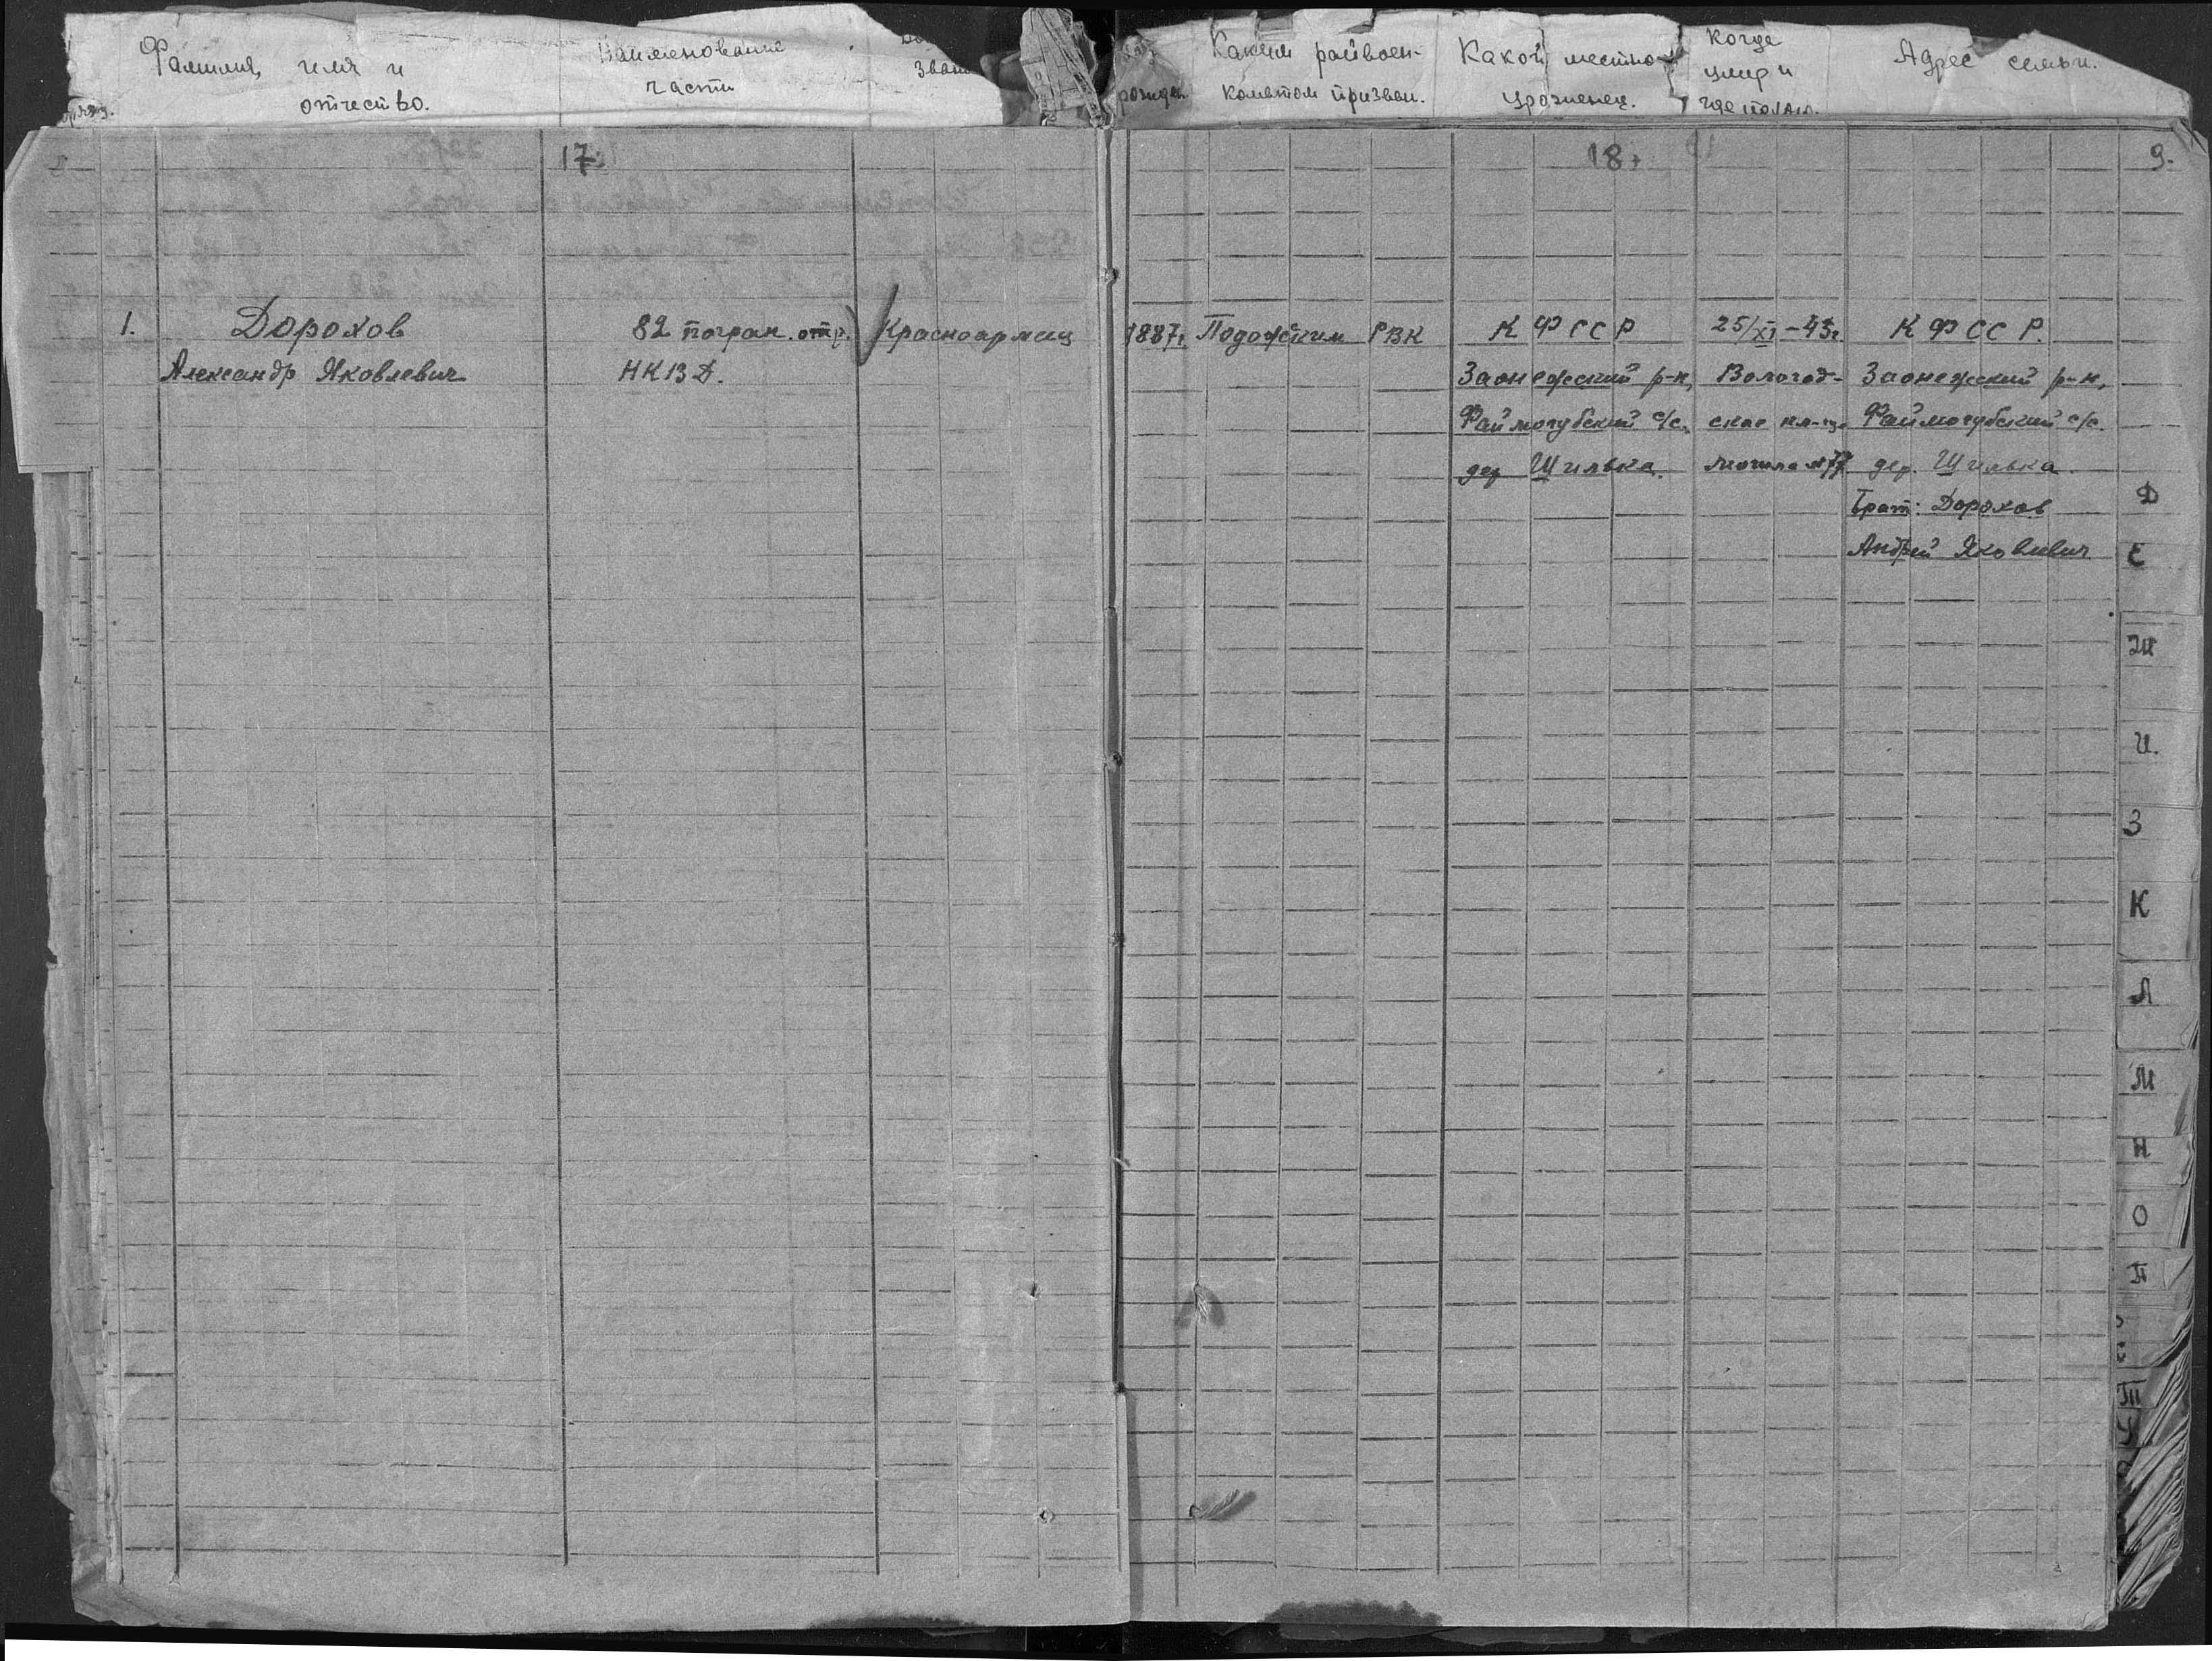 Фамилия, имя и
отчество.
Наименование
части
Каким райвоен-
коматом призван.
Какой местно-
уроженец.
Когда
умер и
где похор.
Адрес семьи.
17.
18.
9.
1.
Дорохов
Александр Яковлевич
82 погран. отр.
НКВД.
Красноармеец
1887г.
Пудожским РВК
КФССР
Заонежский р-н,
Файмогубский с/с.
дер Шилька.
25/XI-43г.
Вологод-
ское кл-ще
могила №77
КФССР.
Заонежский р-н,
Файмогубский с/с.
дер. Шилька.
Брат: Дорохов
Андрей Яковлевич
Д
Е
Ж
И.
З
К
Л
М
Н
О
П
Т
У